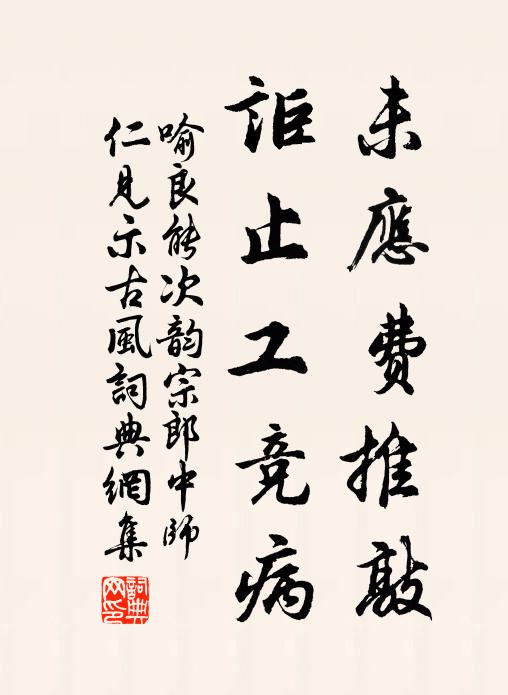 未應費推敲
詎止工竞病
喻良能次韵宗郎中師
仁見示古風詞典網集
詞典网印